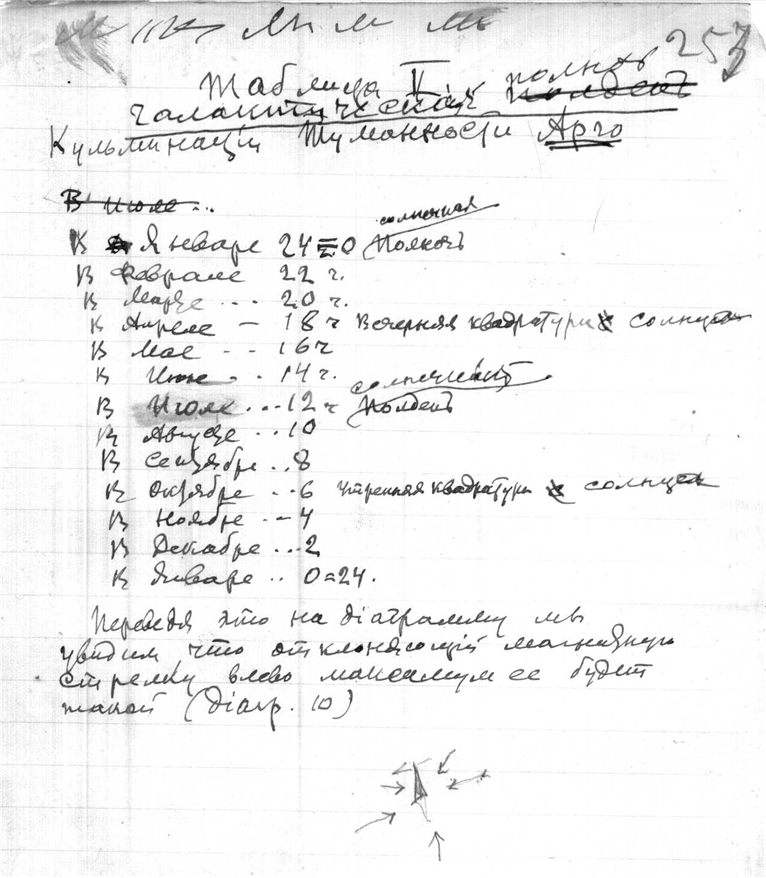 253
Таблица V. полноч
галактическая полдень
Кульминаціи Туманности Арго
В июле ..
солнечная
К Январе 24=0 Полночь
В Феврале 22 ч.
В Марте ... 20 ч.
В Апреле - 18 ч Вечерняя квадратура с солнцем
В Мае -- 16 ч
В Июне .. 14 ч.
солнечный
В Июле ... 12 ч Полдень
В Августе .. 10
В Сентябре .. 8
В Октябре .. 6 утренняя квадратура с солнцем
В Ноябре .- 4
В Декабре ... 2
К Январе .. 0=24.
Переведя это на діаграмму мы
увидим что отклоняющій магнитную
стрелку влево максимум ее будет
такой (діагр. 10)